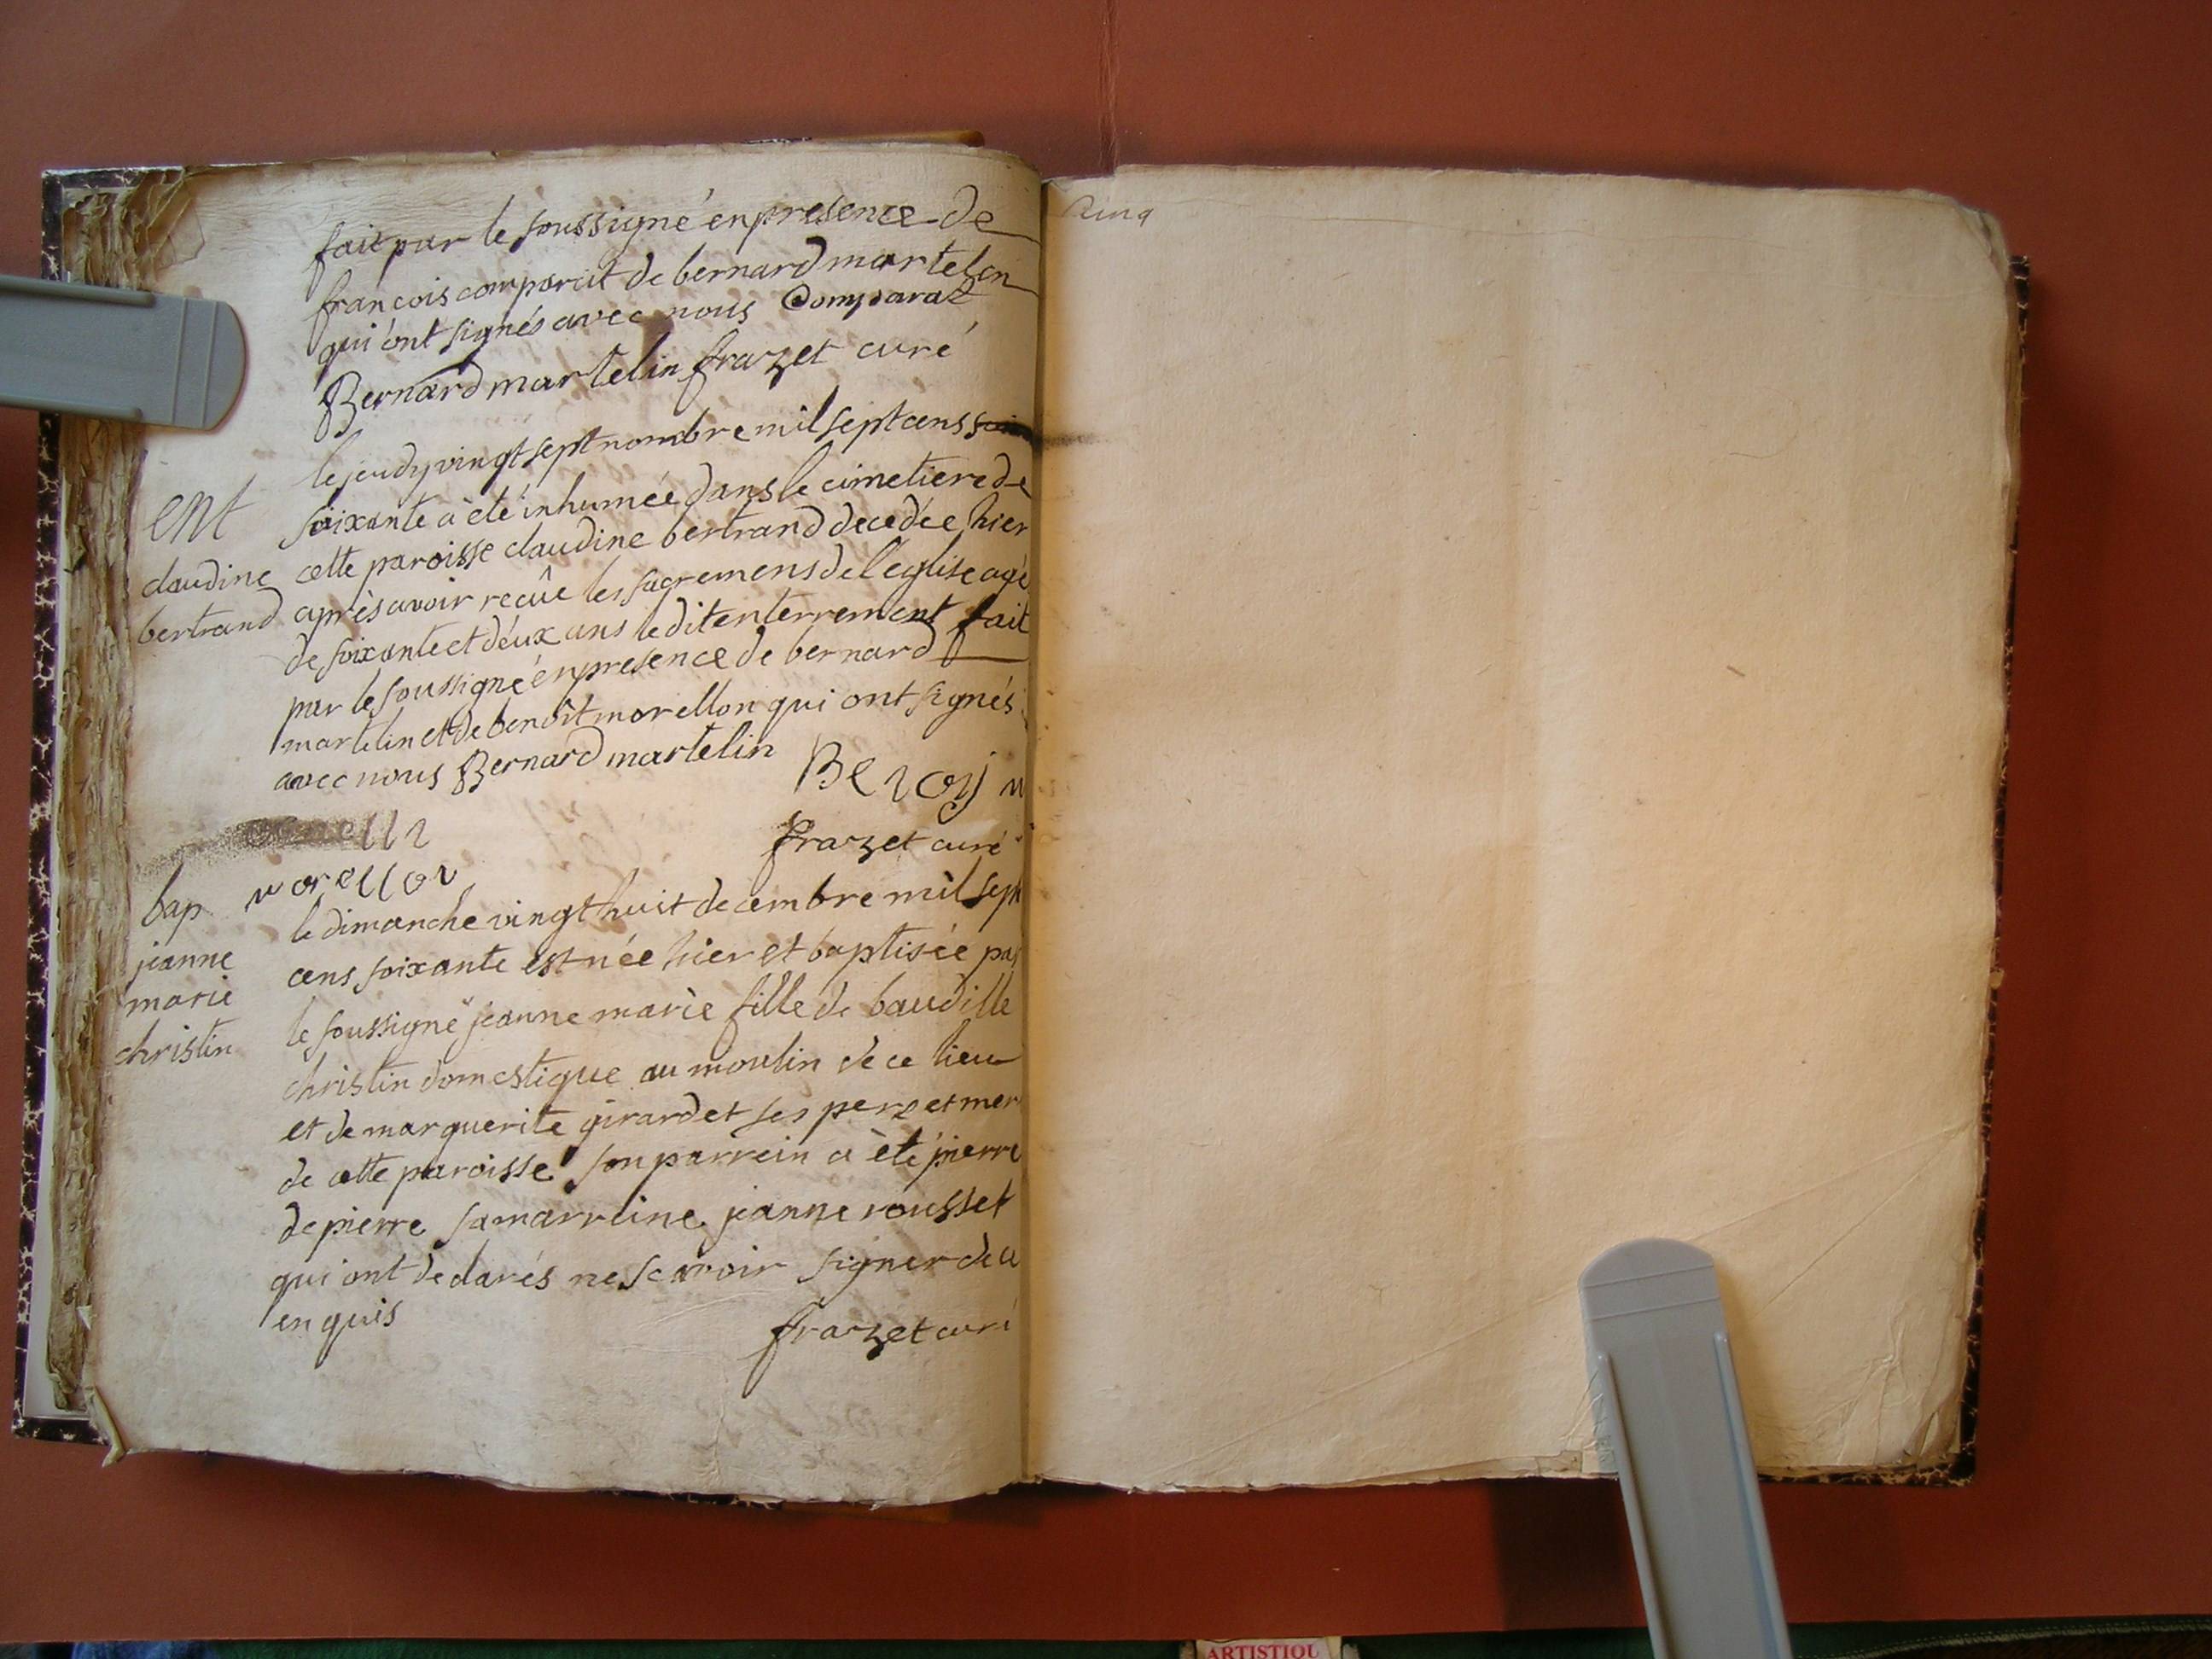 fait par le soussigné en presence de
francois comparat de bernard martelin
qui ont signés avec nous Comparat
Bernard martelin frazet curé
le jeudy vingt sept nombre mil sept cens
ent
soixante à èté inhumée dans le cimetiere de
claudine
cette paroisse claudine bertrand decedée hier
bertrand
après avoir reçûe les sacremens de l'eglise agé
de soixante et déux ans le dit enterrement fait
par le soussigné en presence de bernard
martelin et de benoît morellon qui ont signés
avec nous Bernard martelin
frazet curé
morellon
bap
jeanne
marie
christin
le dimanche vingt huit decembre mil sept
cens soixante est née hier et baptisée par
le soussigné jeanne marie fille de baudille
christin domestique au moulin de ce lieu
et de marguerite girardet ses pere et mer
de cette paroisse son parrein a èté pierre
depierre sa marreine jeanne rousset
qui ont declarés ne scavoir signer de ce
enquis
frazet curé
cinq
ARTISTIQU